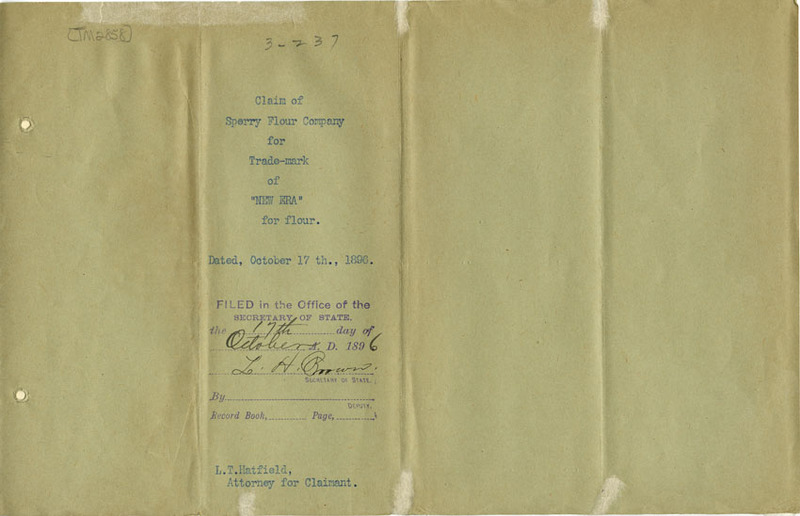 [TM2858]
3-237
Claim of
Sperry Flour Company
for
Trade-mark
of
"NEW ERA"
for flour.
Dated, October 17 th., 1896.
FILED in the Office of the
SECRETARY OF STATE.
the 17th day of
October A. D. 1896
L. H. Brown.
SECRETARY OF STATE.
By
DEPUTY.
Record Book, Page,
L.T.Hatfield,
Attorney for Claimant.